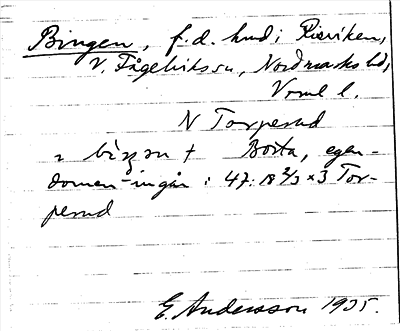 Bingen, f.d. lund i Rieviken,
V. Fågelviks sn, Nordmarks hd,
Vrml l.
N Torperud
= bi̇ŋən + Borta, egen-
domen ingår i 47: 18 2/3 × 3 Tor-
perud
E. Andersson 1935.